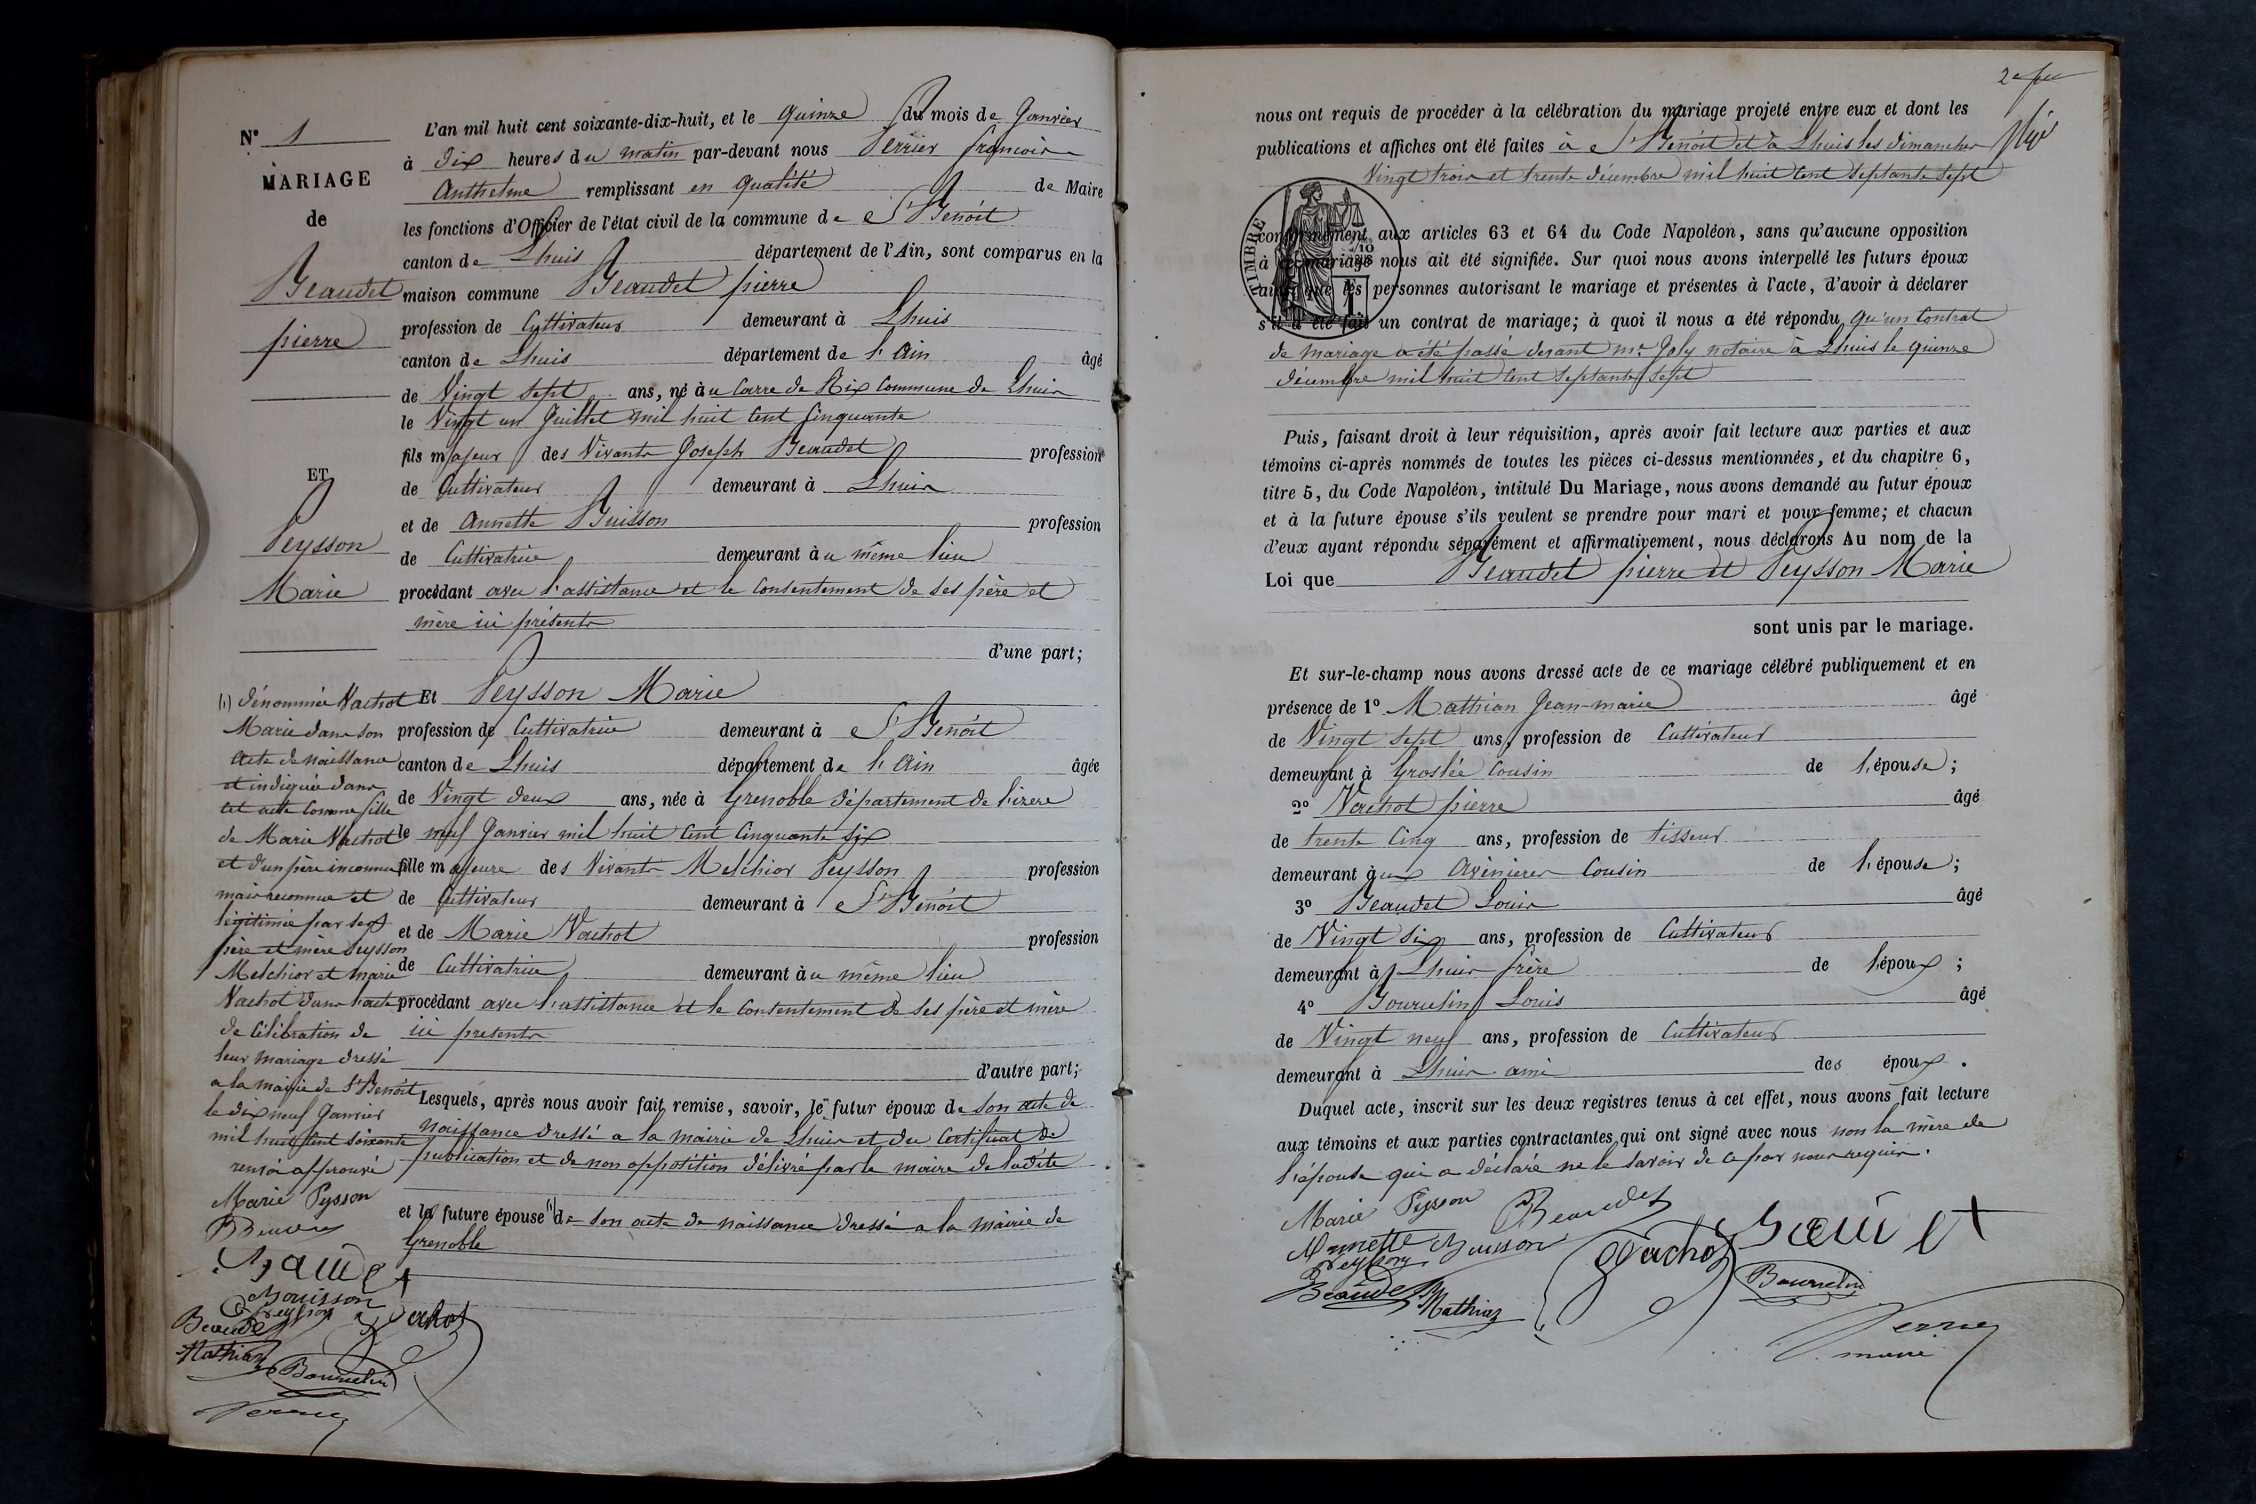 N° 1
MARIAGE
de
Beaudet
pierre
ET
Peysson
Marie
L'an mil huit cent soixante-dix-huit, et le quinze du mois de Janvier
à dix heures du matin par-devant nous Perrier françois
Anthelme remplissant en qualité de Maire
les fonctions d'Officier de l'état civil de la commune de St Benoit
canton de Lhuis département de l'Ain, sont comparus en la
maison commune Beaudet pierre
profession de Cultivateur demeurant à Lhuis
canton de Lhuis département de l'Ain âgé
de Vingt sept ans, né à u Carre de Rix Commune de Lhuis
le Vingt un Juillet mil huit Cent Cinquante
fils majeur des Vivants Joseph Beaudet profession
de Cultivateur demeurant à Lhuis
et de Annette Buisson profession
de Cultivatrice demeurant à u même lieu
procédant avec l'assistance et le consentement de ses père et
mère ici présents
d'une part;
Et Peysson Marie
profession de Cultivatrice demeurant à St Benoit
canton de Lhuis département de l'Ain âgée
de Vingt deux ans, née à Grenoble département de l'izere
le neuf Janvier mil huit Cent Cinquante six
fille majeure des Vivants Melchior Peysson profession
de Cultivateur demeurant à St Benoit
et de Marie Vachot profession
de Cultivatrice demeurant à u même lieu
procédant avec l'assistance et le consentement de ses père et mère
ici presents
d'autre part;
Lesquels, après nous avoir fait remise, savoir, le futur époux de son acte de
naissance dressé a la mairie de Lhuis et du Certificat de
publication et de non opposition délivré par le maire de ladite
et la future épouse (1) de son acte de naissance dressé a la mairie de
Grenoble
(1) dénommée Vachot
Marie dans son
acte de naissance
et indiquée dans
cet acte comme fille
de Marie Vachot
et d'un père inconnu
mais reconnue et
légitimée par ses
père et mère Peysson
Melchior et Marie
Vachot dans l'acte
de célébration de
leur mariage dressé
a la mairie de St Benoit
le dix neuf Janvier
mil huit cent soixante
renvoi approuvé
Marie Pysson
Baudet
Bouisson
Peysson
Beaudet
Vachot
Mathian
Bourrelin
Perrier
nous ont requis de procéder à la célébration du mariage projeté entre eux et dont les
publications et affiches ont été faites à St Benoit et à Lhuis les dimanches
Vingt trois et trente décembre mil huit Cent Septante Sept
TIMBRE
conformément aux articles 63 et 64 du Code Napoléon, sans qu'aucune opposition
à ce mariage nous ait été signifiée. Sur quoi nous avons interpellé les futurs époux
ainsi que les personnes autorisant le mariage et présentes à l'acte, d'avoir à déclarer
s'il a été fait un contrat de mariage; à quoi il nous a été répondu qu'un Contrat
de mariage a été passé devant Me Joly notaire à Lhuis le quinze
décembre mil huit Cent Septante Sept
Puis, faisant droit à leur réquisition, après avoir fait lecture aux parties et aux
témoins ci-après nommés de toutes les pièces ci-dessus mentionnées, et du chapitre 6,
titre 5, du Code Napoléon, intitulé Du Mariage, nous avons demandé au futur époux
et à la future épouse s'ils veulent se prendre pour mari et pour femme; et chacun
d'eux ayant répondu séparément et affirmativement, nous déclarons Au nom de la
Loi que Beaudet pierre et Peysson Marie
sont unis par le mariage.
Et sur-le-champ nous avons dressé acte de ce mariage célébré publiquement et en
présence de 1° Mathian Jean-marie âgé
de Vingt sept ans, profession de Cultivateur
demeurant à Groslée Cousin de l'épouse;
2° Vachot pierre âgé
de trente Cinq ans, profession de tisseur
demeurant à ux Avenieres Cousin de l'épouse;
3° Beaudet Louis âgé
de Vingt six ans, profession de Cultivateur
demeurant à Lhuis frère de l'époux;
4° Bourrelin Louis âgé
de Vingt neuf ans, profession de Cultivateur
demeurant à Lhuis ami des époux.
Duquel acte, inscrit sur les deux registres tenus à cet effet, nous avons fait lecture
aux témoins et aux parties contractantes qui ont signé avec nous non la mère de
l'épouse qui a déclaré ne le savoir de ce par nous requise.
Marie Pysson Beaudet
Annette Buisson Vachot Baudet
Peysson
Beaudet Mathian Bourrelin
Perrier
maire